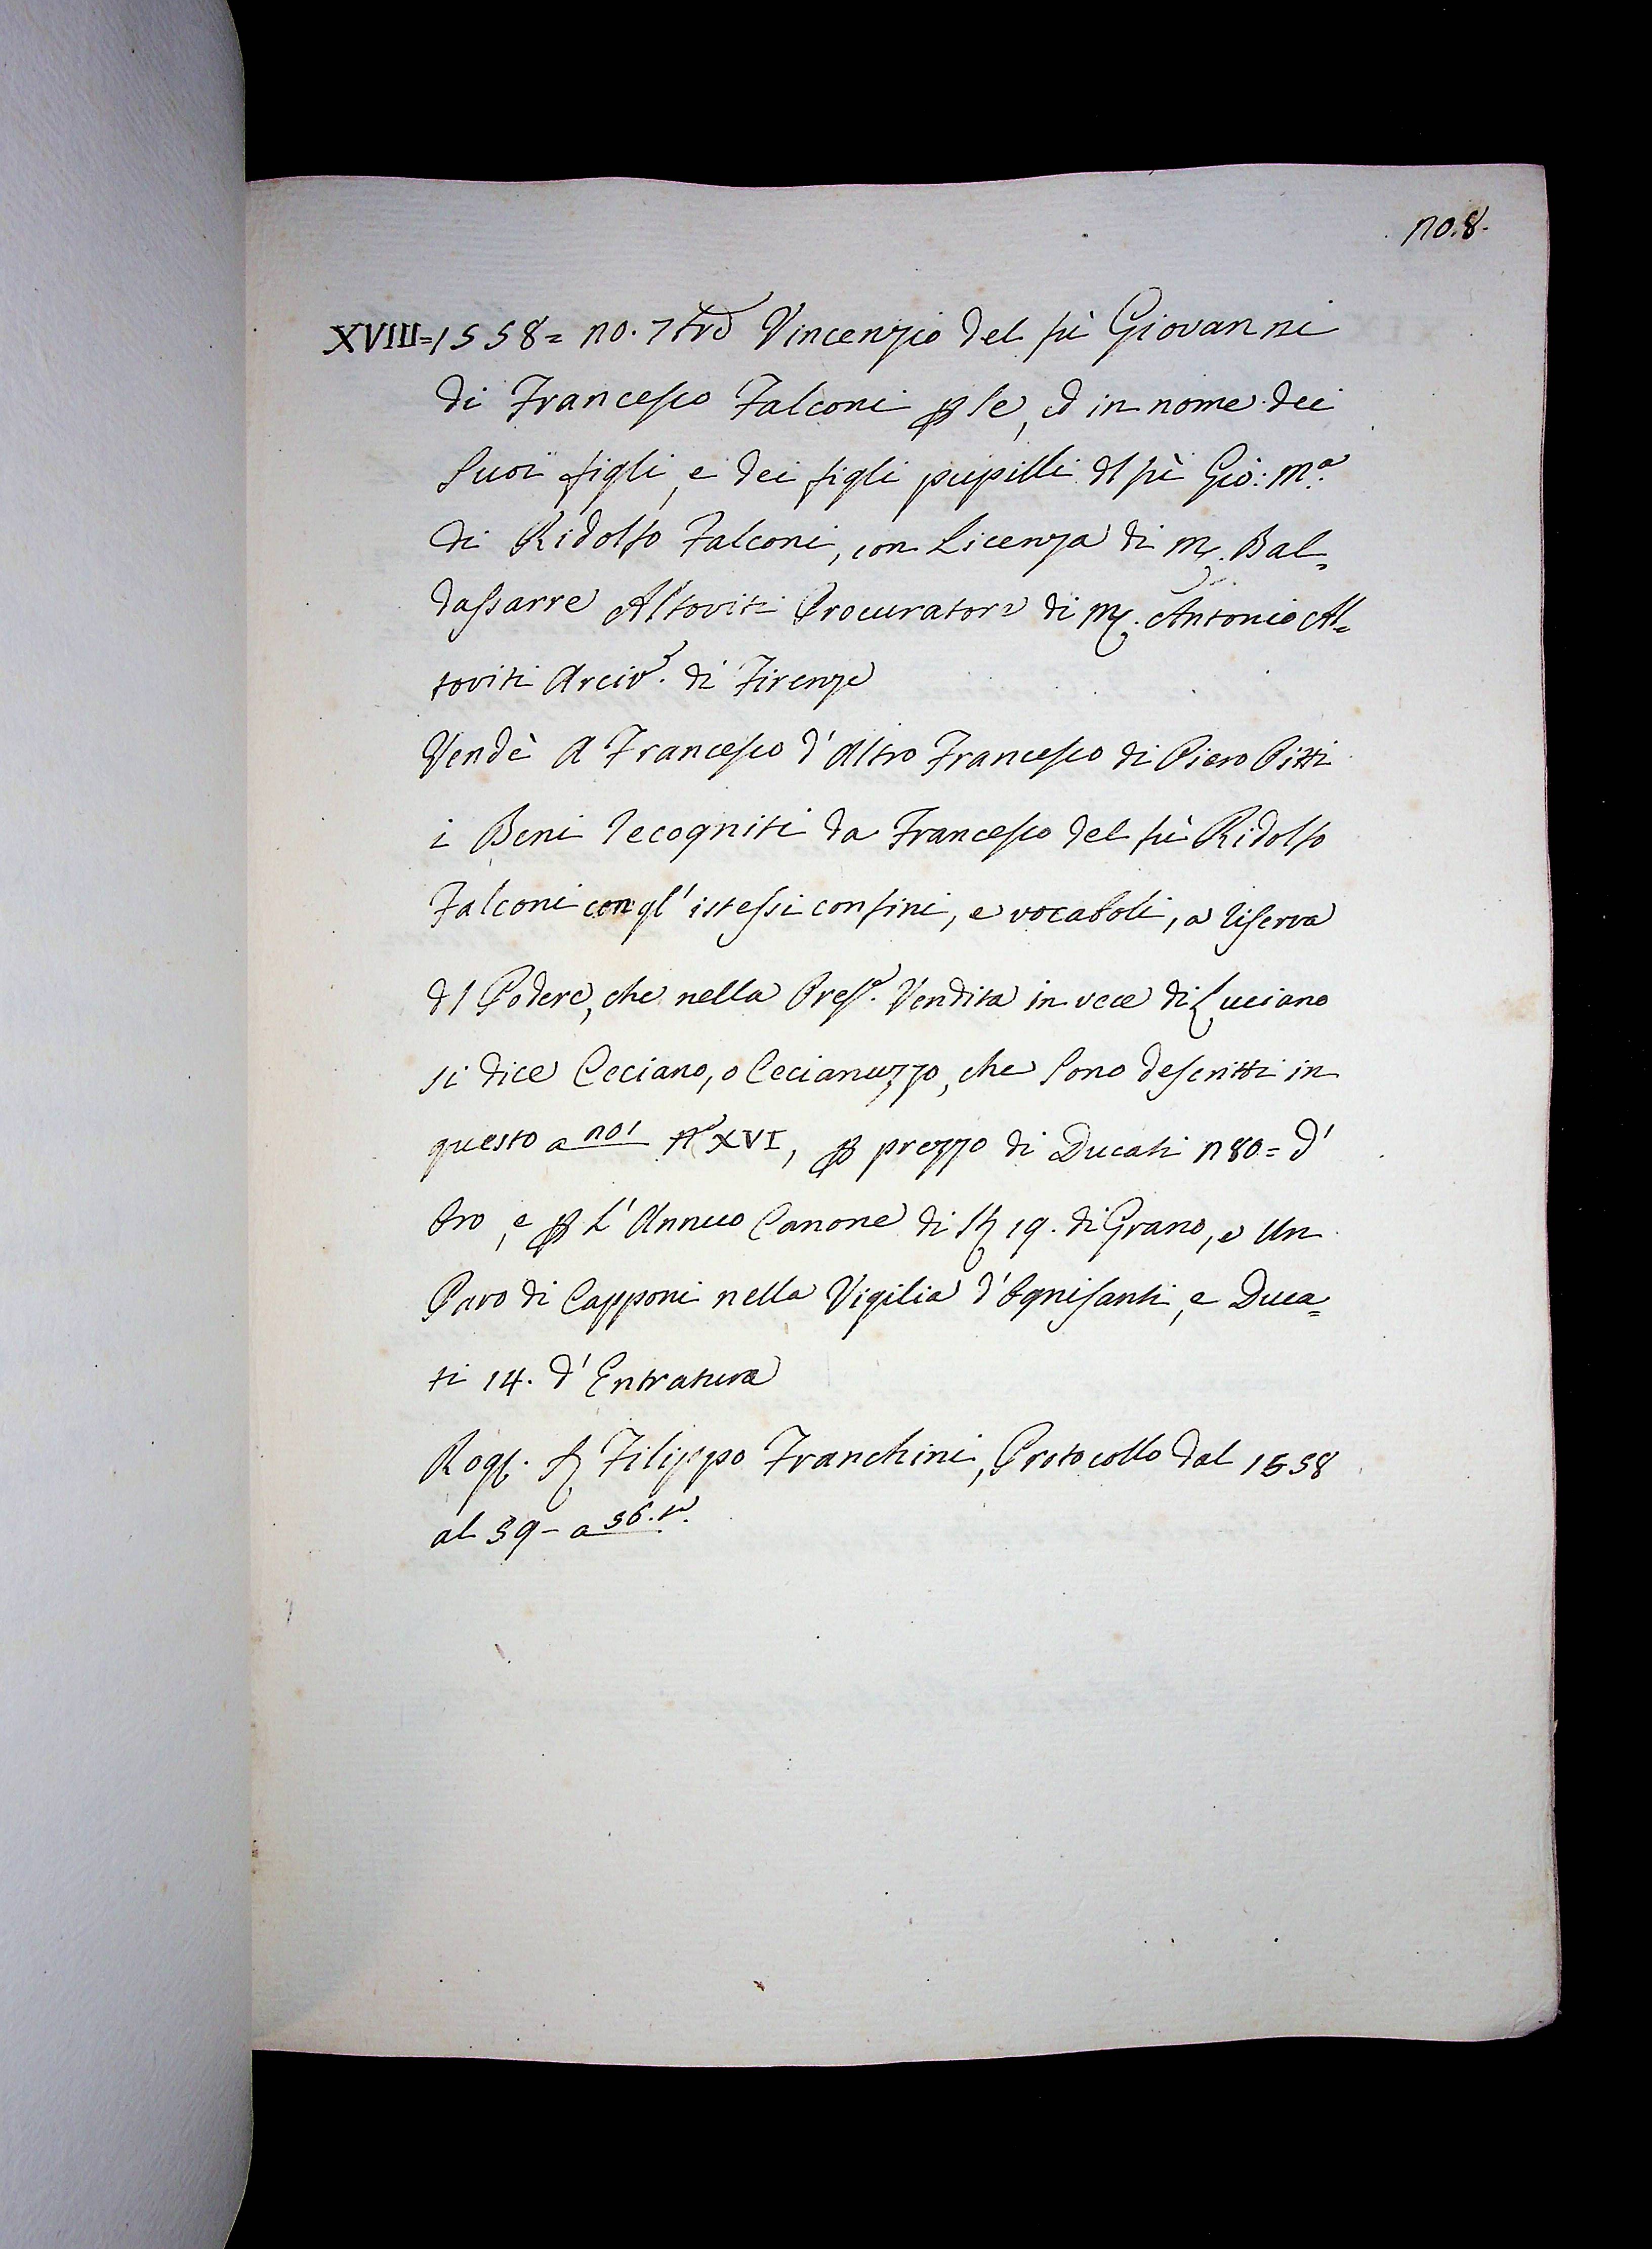 no.8.
XVIII=1558= no. 7bre Vincenzio del fù Giovanni
di Francesco Falconi p se, ed in nome dei
Suoi figli, e dei figli pupilli dl fù Gio: Mª.
di Ridolfo Falconi, con Licenza di M. Bal=
dassarre Altoviti Procuratore di M. Antonio Al=
toviti Arciv.º di Firenze
Vendè a Francesco d'Altro Francesco di Piero Pitti
i Beni recogniti da Francesco del fù Ridolfo
Falconi con gl'istessi confini, e vocaboli, a riserva
dl Podere, che nella Pres.ª Vendita in vece di Luciano
si dice Ceciano, o Cecianuzzo, che sono descritti in
questo a no1 Nº XVI, p prezzo di Ducati n80= d'
Oro, e p L'Annuo Canone di St 19. di Grano, e Un
Paro di Capponi nella Vigilia d'Ognisanti, e Duca=
ti 14. d'Entratura
Rog. S. Filippo Franchini, Protocollo dal 1558
al 59- a 56.to